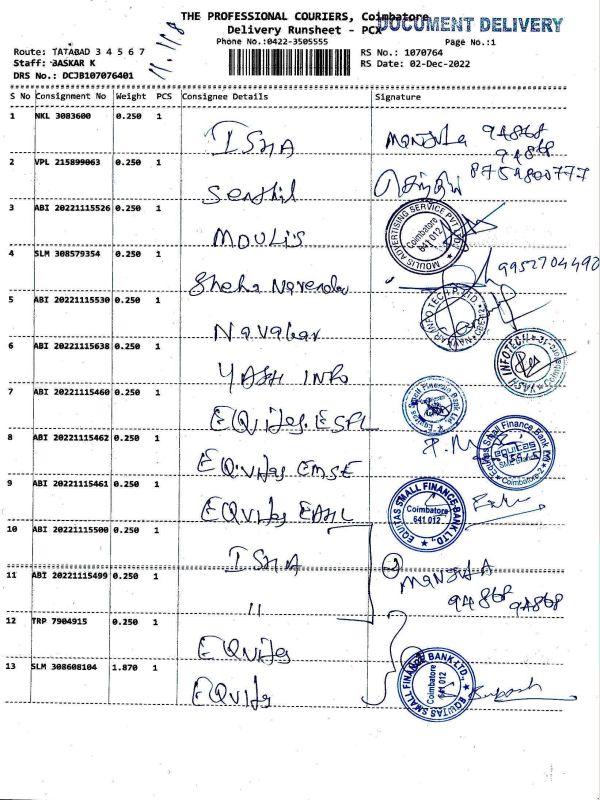 THE PROFESSIONAL COURIERS, Coimbatore
DOCUMENT DELIVERY
Delivery Runsheet - PCX
Phone No.:0422-3505555
Page No.:1
Route: TATABAD 3 4 5 6 7
RS No.: 1070764
Staff: BASKAR K
RS Date: 02-Dec-2022
DRS No.: DCJB107076401
S No Consignment No Weight PCS Consignee Details Signature
1 NKL 3083600 0.250 1
ISHA Manjula 94868
94868
2 VPL 215899063 0.250 1
Senthil 8754800777
3 ABI 20221115526 0.250 1
MOULIS
MOULIS ADVERTISING SERVICE PVT LTD Coimbatore 641 012
4 SLM 308579354 0.250 1
Sneha Narendra 9952704490
5 ABI 20221115530 0.250 1
Navabar
6 ABI 20221115638 0.250 1
YASH INFO
YASH INFOTECH
7 ABI 20221115460 0.250 1
EQUITAS ESFL
Equitas Small Finance Bank Ltd
8 ABI 20221115462 0.250 1
EQUITAS EMSE
Equitas Small Finance Bank Coimbatore-2
9 ABI 20221115461 0.250 1
EQUITAS EAHL
EQUITAS SMALL FINANCE BANK LTD., Coimbatore 641 012
10 ABI 20221115500 0.250 1
ISHA
11 ABI 20221115499 0.250 1
11 MANJULA
94868 94868
12 TRP 7904915 0.250 1
EQUITAS
13 SLM 308608104 1.870 1
EQUITAS
EQUITAS SMALL FINANCE BANK LTD., Coimbatore 641 012